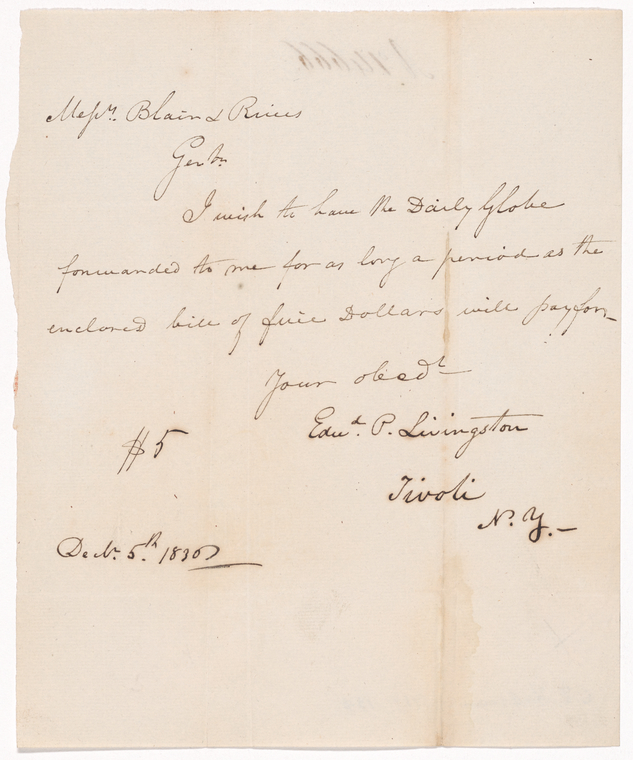 Messrs. Blair & Rives
Gentn
I wish to have the Daily Globe
forwarded to me for as long a period as the
enclosed bill of five Dollars will pay for_
Your obedt
Edwd. P. Livingston
$5
Tivoli
N. Y. _
Decr. 5.th